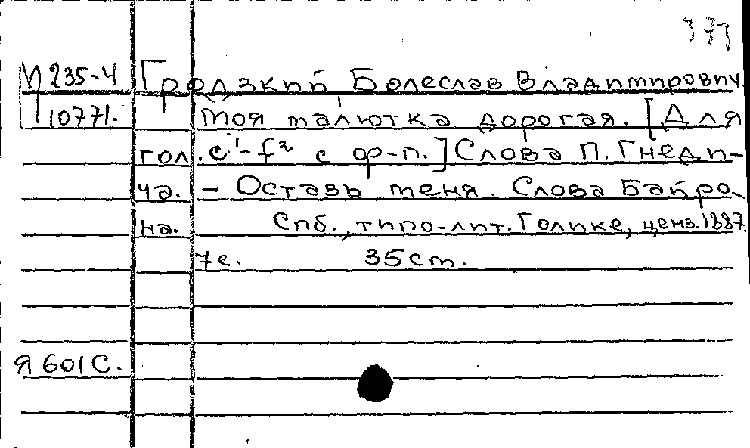 И 235-4 Гродзкий Болеслав Владимирович
10771. Моя малютка дорогая. [Для
гол. c¹-f² с ф-п.] Слова П. Гнеди-
ча. - Оставь меня. Слова Байро-
на. Спб., типо-лит. Голике, ценз. 1887
7с. 35cm.
Я 601С.